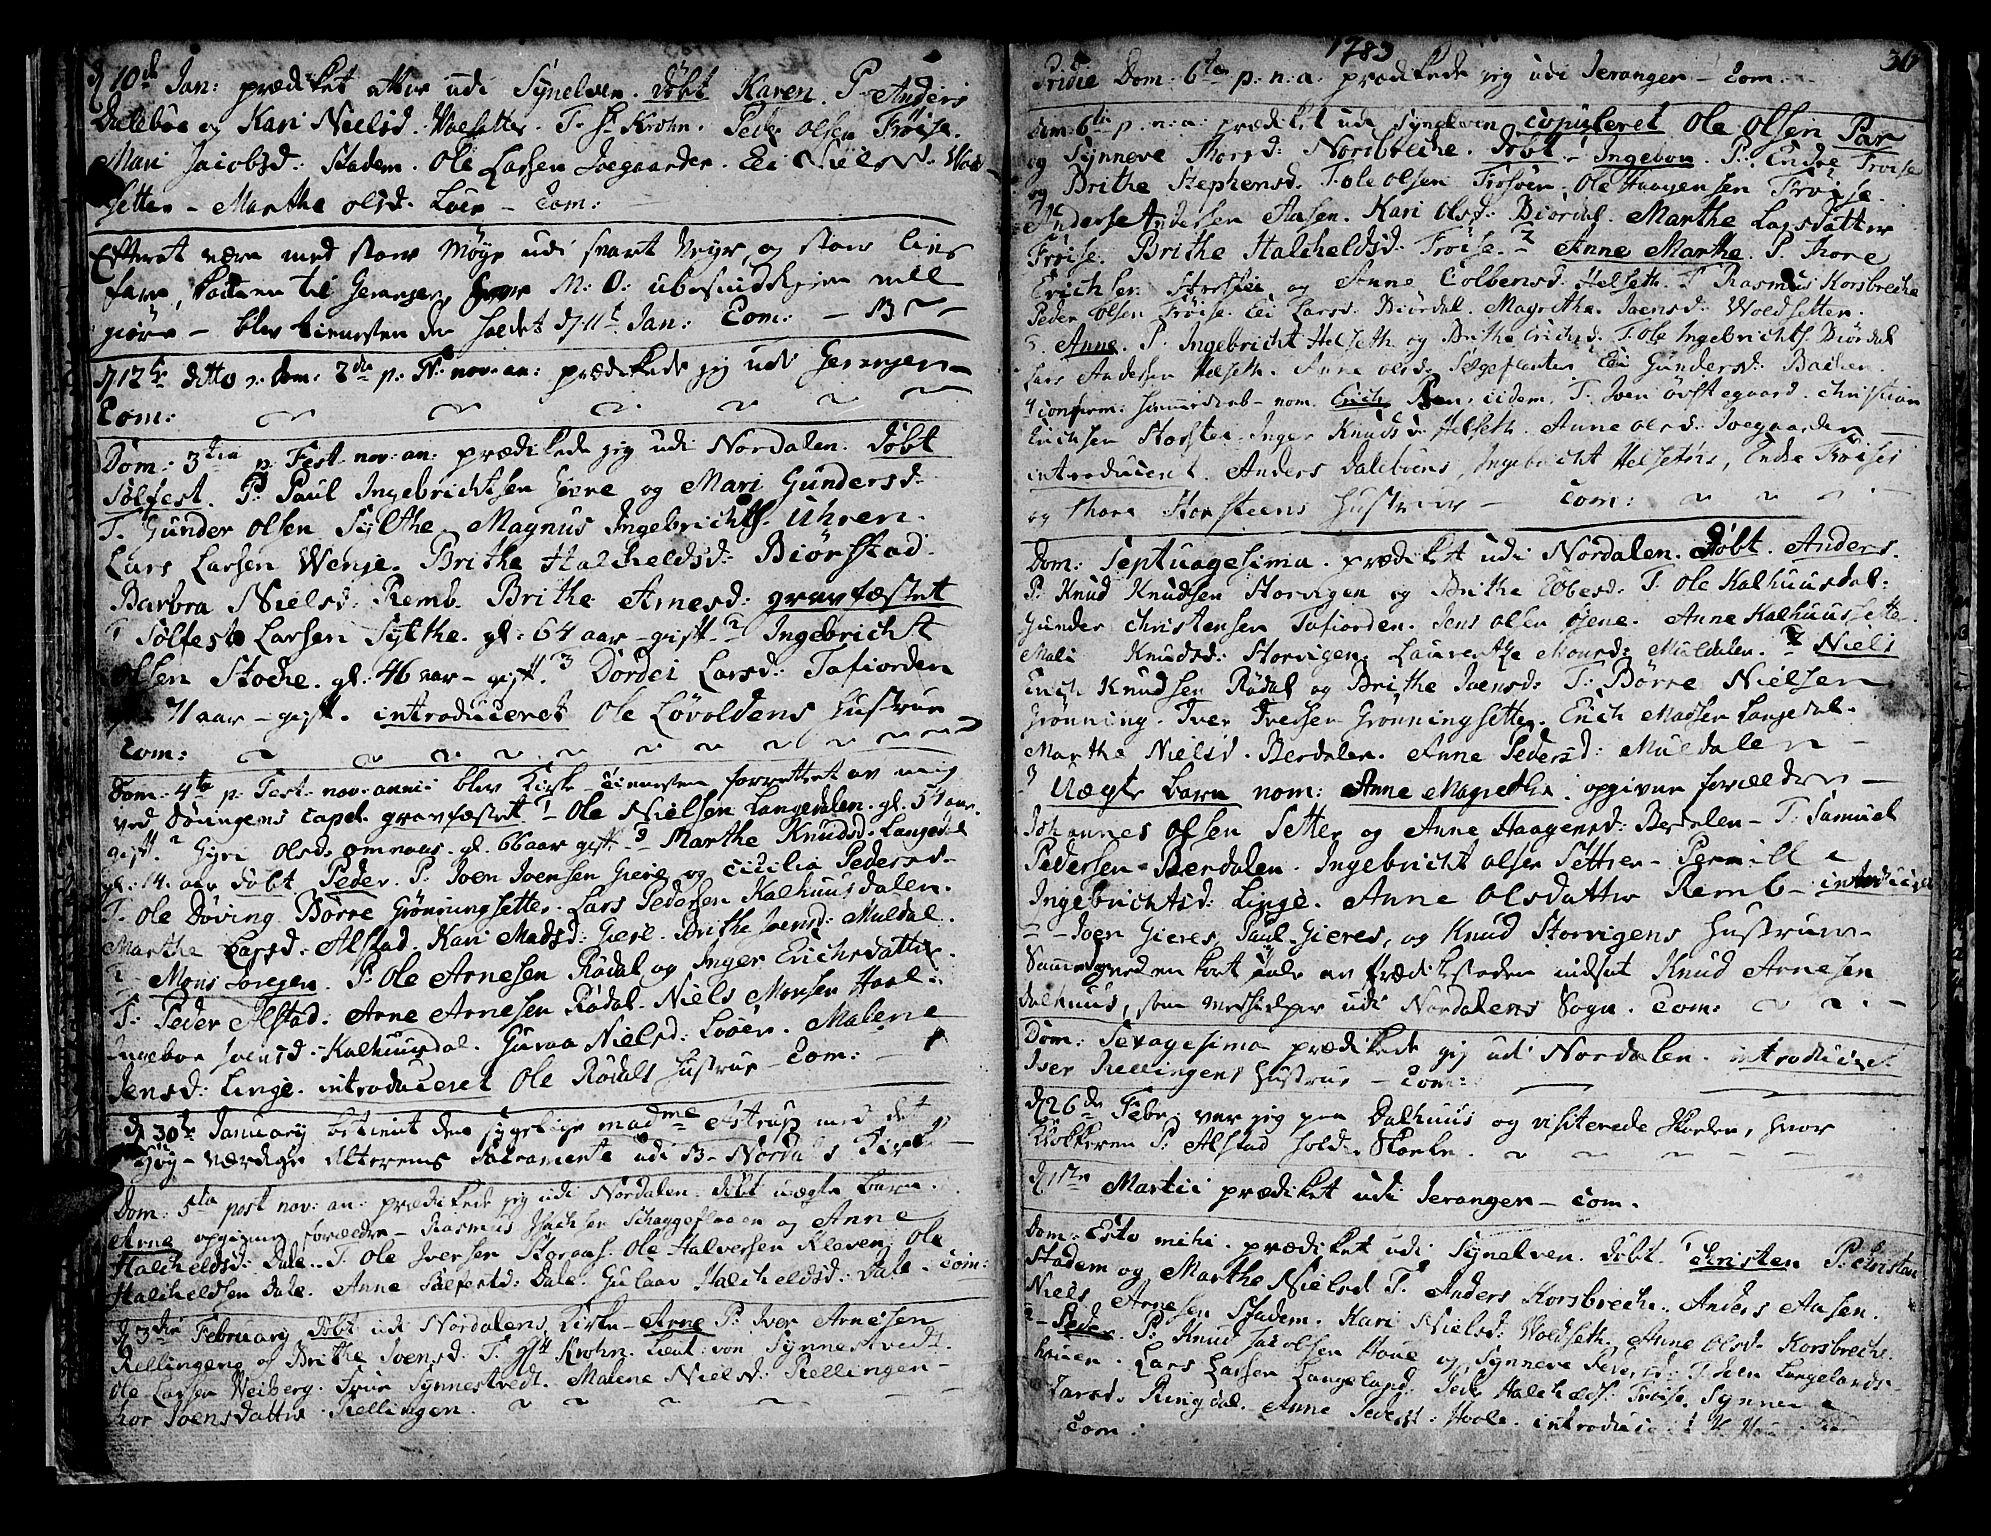 d 10de Jan: prædiket atter udi Synelven. Døbt Karen. P. Anders
Daleboe og Kari Nielsd. Wolsetter. T. Hr Krohn. Peder Olsen Frøise.
Mari Jacobsd: Stadem. Ole Larsen Joegaarder. Eli Nielsd. Wold
setter - Marthe Olsd. Løer - Com:
Efterat være med stor Møye udi snart Veyr, og stor lívs
fare, kommen til Geranger, M. O.
giøre - blev tienesten der holdet d 11te Jan: Com: -
d 12te ditto o: Dom: 2da p. F. nov. an: prædikede jeg udi Geranger -
Com:
Dom: 3tia p. Fest. nov: an: prædikede jeg udi Nordalen. Døbt
Sølfest. P: Paul Ingebrichtsen Giere og Mari Gundersd:
T. Gunder Olsen Sylthe. Magnus Ingebrichts. Uhren.
Lars Larsen Wenje. Brithe Halcheldsd: Biørstad.
Barbra Nielsd. Remb. Brithe Arnesd: gravfæstet
1 Sølfest Larsen Sylthe. gl: 64 aar - gift. 2 Ingebricht
Olsen Stoche. gl: 46 aar - gift. 3 Dordei Larsd: Tafiorden
71 aar - gift. introduceret Ole Løvoldens Hustrue
Com:
Dom: 4ta p. Fest. nov: anni: blev Kirke-tienesten forrettet av mig
ved Døvingens Capel gravfæstet 1 Ole Nielsen Langedalen. gl. 54 aar
gift. 2 Gyri Olsd. Omnaas. gl. 66 aar gift 3 Marthe Knudsd. Langedal
gl: 14. aar døbt Peder. P. Joen Joensen Giere og Cicilia Pedersd.
T. Ole Døving. Børre Grønningsetter. Lars Pedersen Kalhuusdalen.
Marthe Larsd: Alstad. Kari Madsd: Giere. Brithe Joensd: Muldal.
2 Mons Joregen. P. Ole Arnesen Rødal og Inger Erichsdatter.
T: Peder Alstad. Arne Arnesen Rødal. Niels Monsen Hoel.
Ingebor Joensd: Kalhuusdal. Guroa Nielsd: Løøer. Malene
Jensd: Linge. introduceret Ole Rødals Hustrue - Com:
d 30te January betient den sygelige madme Astrup med det
Høy-værdige Alterens Sacramente udi Nordals Kirke
Dom: 5ta post nov: an: prædikede jeg udi Nordalen. Døbt uægte barn.
Arne opgivne forældre - Rasmus Schaggeflaaen og Anne
Halcheldsd: Dale. T. Ole Iversen Storaas. Ole Halversen Klaven. Ole
Halcheldsen Dale. Anne Sølfestd: Dale. Gulaae Halcheldsd: Dale - Com:
d 3die February døbt udi Nordalens Kirke - Arne P: Iver Arnesen
Rellingens og Brithe Joensd: T. Hr Krohn. Lieut: von Synnestvedt.
Ole Larsen Weiberg. Frue Synnestvedt. Malene Nielsd: Rellingen -
Joensdatter Rellingen.
1783
36
Pridie Dom: 6ta p. n. a. prædikede jeg udi Jeranger - Com:
Dom: 6ta p. n: a: prædiket udi Synelven copuleret Ole Olsen Par
og Synneve Thorsd: Norsbreche. Døbt 1 Ingebor. P: Endre Frøise
og Brithe Stephensd. T. Ole Olsen Frøsøer. Ole Haagensen Frøise.
Anders Andersen Aasen. Kari Olsd: Biørdal. Marthe Larsdatter
Frøise. Brithe Halcheldsd. Frøise. 2 Anne Marthe. P. Thore
Erichsen Storstei og Anne Colbensd. Helseth. T. Rasmus Korsbreche
Peder Olsen Frøise. Eli Larsd. Biørdal. Magrethe Joensd: Woldsetter.
3. Anne. P. Ingebricht Helseth og Brithe Erichsd. T. Ole Ingebrichts. Biørdal
Lars Andersen Helseth. Anne Olsd. Sægeflaaten Eli Gundersd: Bachen.
4 confirm: hiemmedaab - nom. Erich Par. eidem. T. Joen Øvstegaard. Christian
Erichsen Storstei. Inger Knudsd. Helseth. Anne Olsd. Joegaarden
introduceret. Anders Daleboens, Ingebricht Helseths, Endre Frøises
og Thore Storsteens Hustruer - Com:
Dom: Septuagesima. prædiket udi Nordalen. Døbt. Anders.
P. Knud Knudsen Storvigen og Brithe Ebbesd. T. Ole Kalhuusdal:
Gunder Christensen Tafiorden. Jens Olsen Øiene. Anne Kalhuussetter.
Mali Knudsd: Storvigen. Laurentze Monsd: Muldalen. 2 Niels
Erich Knudsen Rødal og Brithe Joensd: T. Børre Nielsen
Grønning. Iver Iversen Grønningsetter. Erich Madsen Langedal.
Marthe Nielsd. Berdalen. Anne Pedersd: Muldalen -
3 Uægte barn nom: Anne Magrethe. opgivne forældre -
Johannes Olsen Setter og Anne Haagensd: Berdalen - T: Samuel
Pedersen Berdalen. Ingebricht Olsen Setter - Pernille
Ingebrichtsd: Linge. Anne Olsdatter Remb - introduceret
- Joen Gieres, Paul Gieres, og Knud Storvigens Hustruer -
Sammesteden blev av Prædikestolen indsat Knud Arnesen
Dalhuus, som Medhielper udi Nordalens Sogn. Com:
Dom: Sexagesima prædikede jeg udi Nordalen. introduceret
Iver Rellingens Hustrue - Com:
d 26de Febr: var jeg paa Dalhuus og visiterede Skolen, hvor
Klokkeren P. Alstad holder Skole.
d 1ste Martii prædiket udi Jeranger - Com.
Dom: Esto mihi. prædiket udi Synelven. Døbt. 1 Christen P. Christen
Stadem og Marthe Nielsd T: Anders Korsbreche. Anders Aasen.
Niels Arnesen Stadem. Kari Nielsd: Woldseth. Anne Olsd. Korsbreche.
2 - Peder. P: Knud Jacobsen Houe og Synneve Pedersd: T. Joen Langelands-
houen. Lars Larsen Langeland. Peder Halcheds. Frøise. Synneve
Larsd. Ringdal. Anne Pedersd: Hoole. introduceret K. Hou
Com: